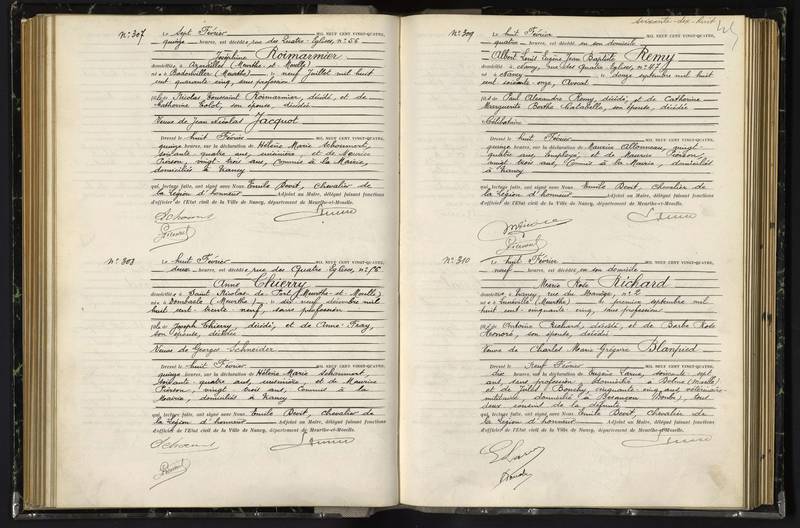 N° 307
Le Sept Février MIL NEUF CENT VINGT-QUATRE,
quinze heures, est décédée, rue des Quatre-Eglises, n° 56
Joséphine Roimarmier
domiciliée à Armaillé (Meurthe-et-Moselle)
née à Badonviller (Meurthe), le neuf Juillet mil huit
cent quarante cinq, sans profession
fille de Nicolas Toussaint Roimarmier, décédé, et de
Catherine Colot, son épouse, décédée
Veuve de Jean Nicolas Jacquot
Dressé le huit Février MIL NEUF CENT VINGT-QUATRE,
quinze heures, sur la déclaration de Hélène Marie Schoumert,
soixante quatre ans, infirmière, et de Maurice
Pierson, vingt-trois ans, Commis à la Mairie,
domiciliés à Nancy
qui, lecture faite, ont signé avec Nous Emile Devit, Chevalier de
la Légion d'honneur Adjoint au Maire, délégué faisant fonctions
d'officier de l'État civil de la Ville de Nancy, département de Meurthe-et-Moselle.
N° 308
Le huit Février MIL NEUF CENT VINGT-QUATRE,
deux heures, est décédée, rue des Quatre Eglises, n° 56
Anne Thierry
domiciliée à Saint Nicolas de Port (Meurthe-et-Moselle)
née à Dombasle (Meurthe), le dix neuf décembre mil
huit cent trente neuf, sans profession
fille de Joseph Thierry, décédé, et de Anne Fray,
son épouse, décédée
Veuve de Georges Schneider
Dressé le huit Février MIL NEUF CENT VINGT-QUATRE,
quinze heures, sur la déclaration de Hélène Marie Schoumert,
soixante quatre ans, infirmière, et de Maurice
Pierson, vingt trois ans, Commis à la
Mairie, domiciliés à Nancy
qui, lecture faite, ont signé avec Nous Emile Devit, Chevalier de
la Légion d'honneur Adjoint au Maire, délégué faisant fonctions
d'officier de l'État civil de la Ville de Nancy, département de Meurthe-et-Moselle.
soixante-dix-huit
N° 309
Le huit Février MIL NEUF CENT VINGT-QUATRE,
quatre heures, est décédé en son domicile
Albert Louis Eugène Jean Baptiste Remy
domicilié à Nancy, rue des Quatre Eglises, n° 47
né à Nancy le douze septembre mil huit
cent soixante-onze, Avocat
fils de Paul Alexandre Remy, décédé, et de Catherine
Marguerite Berthe, son épouse, décédée
Célibataire
Dressé le huit Février MIL NEUF CENT VINGT-QUATRE,
quinze heures, sur la déclaration de Maurice Allonneau, vingt-
quatre ans, Employé, et de Maurice Pierson,
vingt trois ans, Commis à la Mairie, domiciliés
à Nancy
qui, lecture faite, ont signé avec Nous Emile Devit, Chevalier de
la Légion d'honneur Adjoint au Maire, délégué faisant fonctions
d'officier de l'État civil de la Ville de Nancy, département de Meurthe-et-Moselle.
N° 310
Le huit Février MIL NEUF CENT VINGT-QUATRE,
neuf heures, est décédée en son domicile
Marie Rose Richard
domiciliée à Nancy, rue du Manège, n° 2
née à Lunéville (Meurthe) le premier septembre mil
huit cent cinquante cinq, sans profession
fille de Antoine Richard, décédé, et de Barbe Rose
Honoré, son épouse, décédée
Veuve de Charles Marie Grégoire Blanpied
Dressé le Neuf Février MIL NEUF CENT VINGT-QUATRE,
dix heures, sur la déclaration de Eugène, soixante sept
ans, sans profession, domicilié à
et de, cinquante cinq ans, vétérinaire
militaire, domicilié à Besançon (Doubs), tous
deux cousins de la défunte
qui, lecture faite, ont signé avec Nous Emile Devit, Chevalier de
la Légion d'honneur Adjoint au Maire, délégué faisant fonctions
d'officier de l'État civil de la Ville de Nancy, département de Meurthe-et-Moselle.